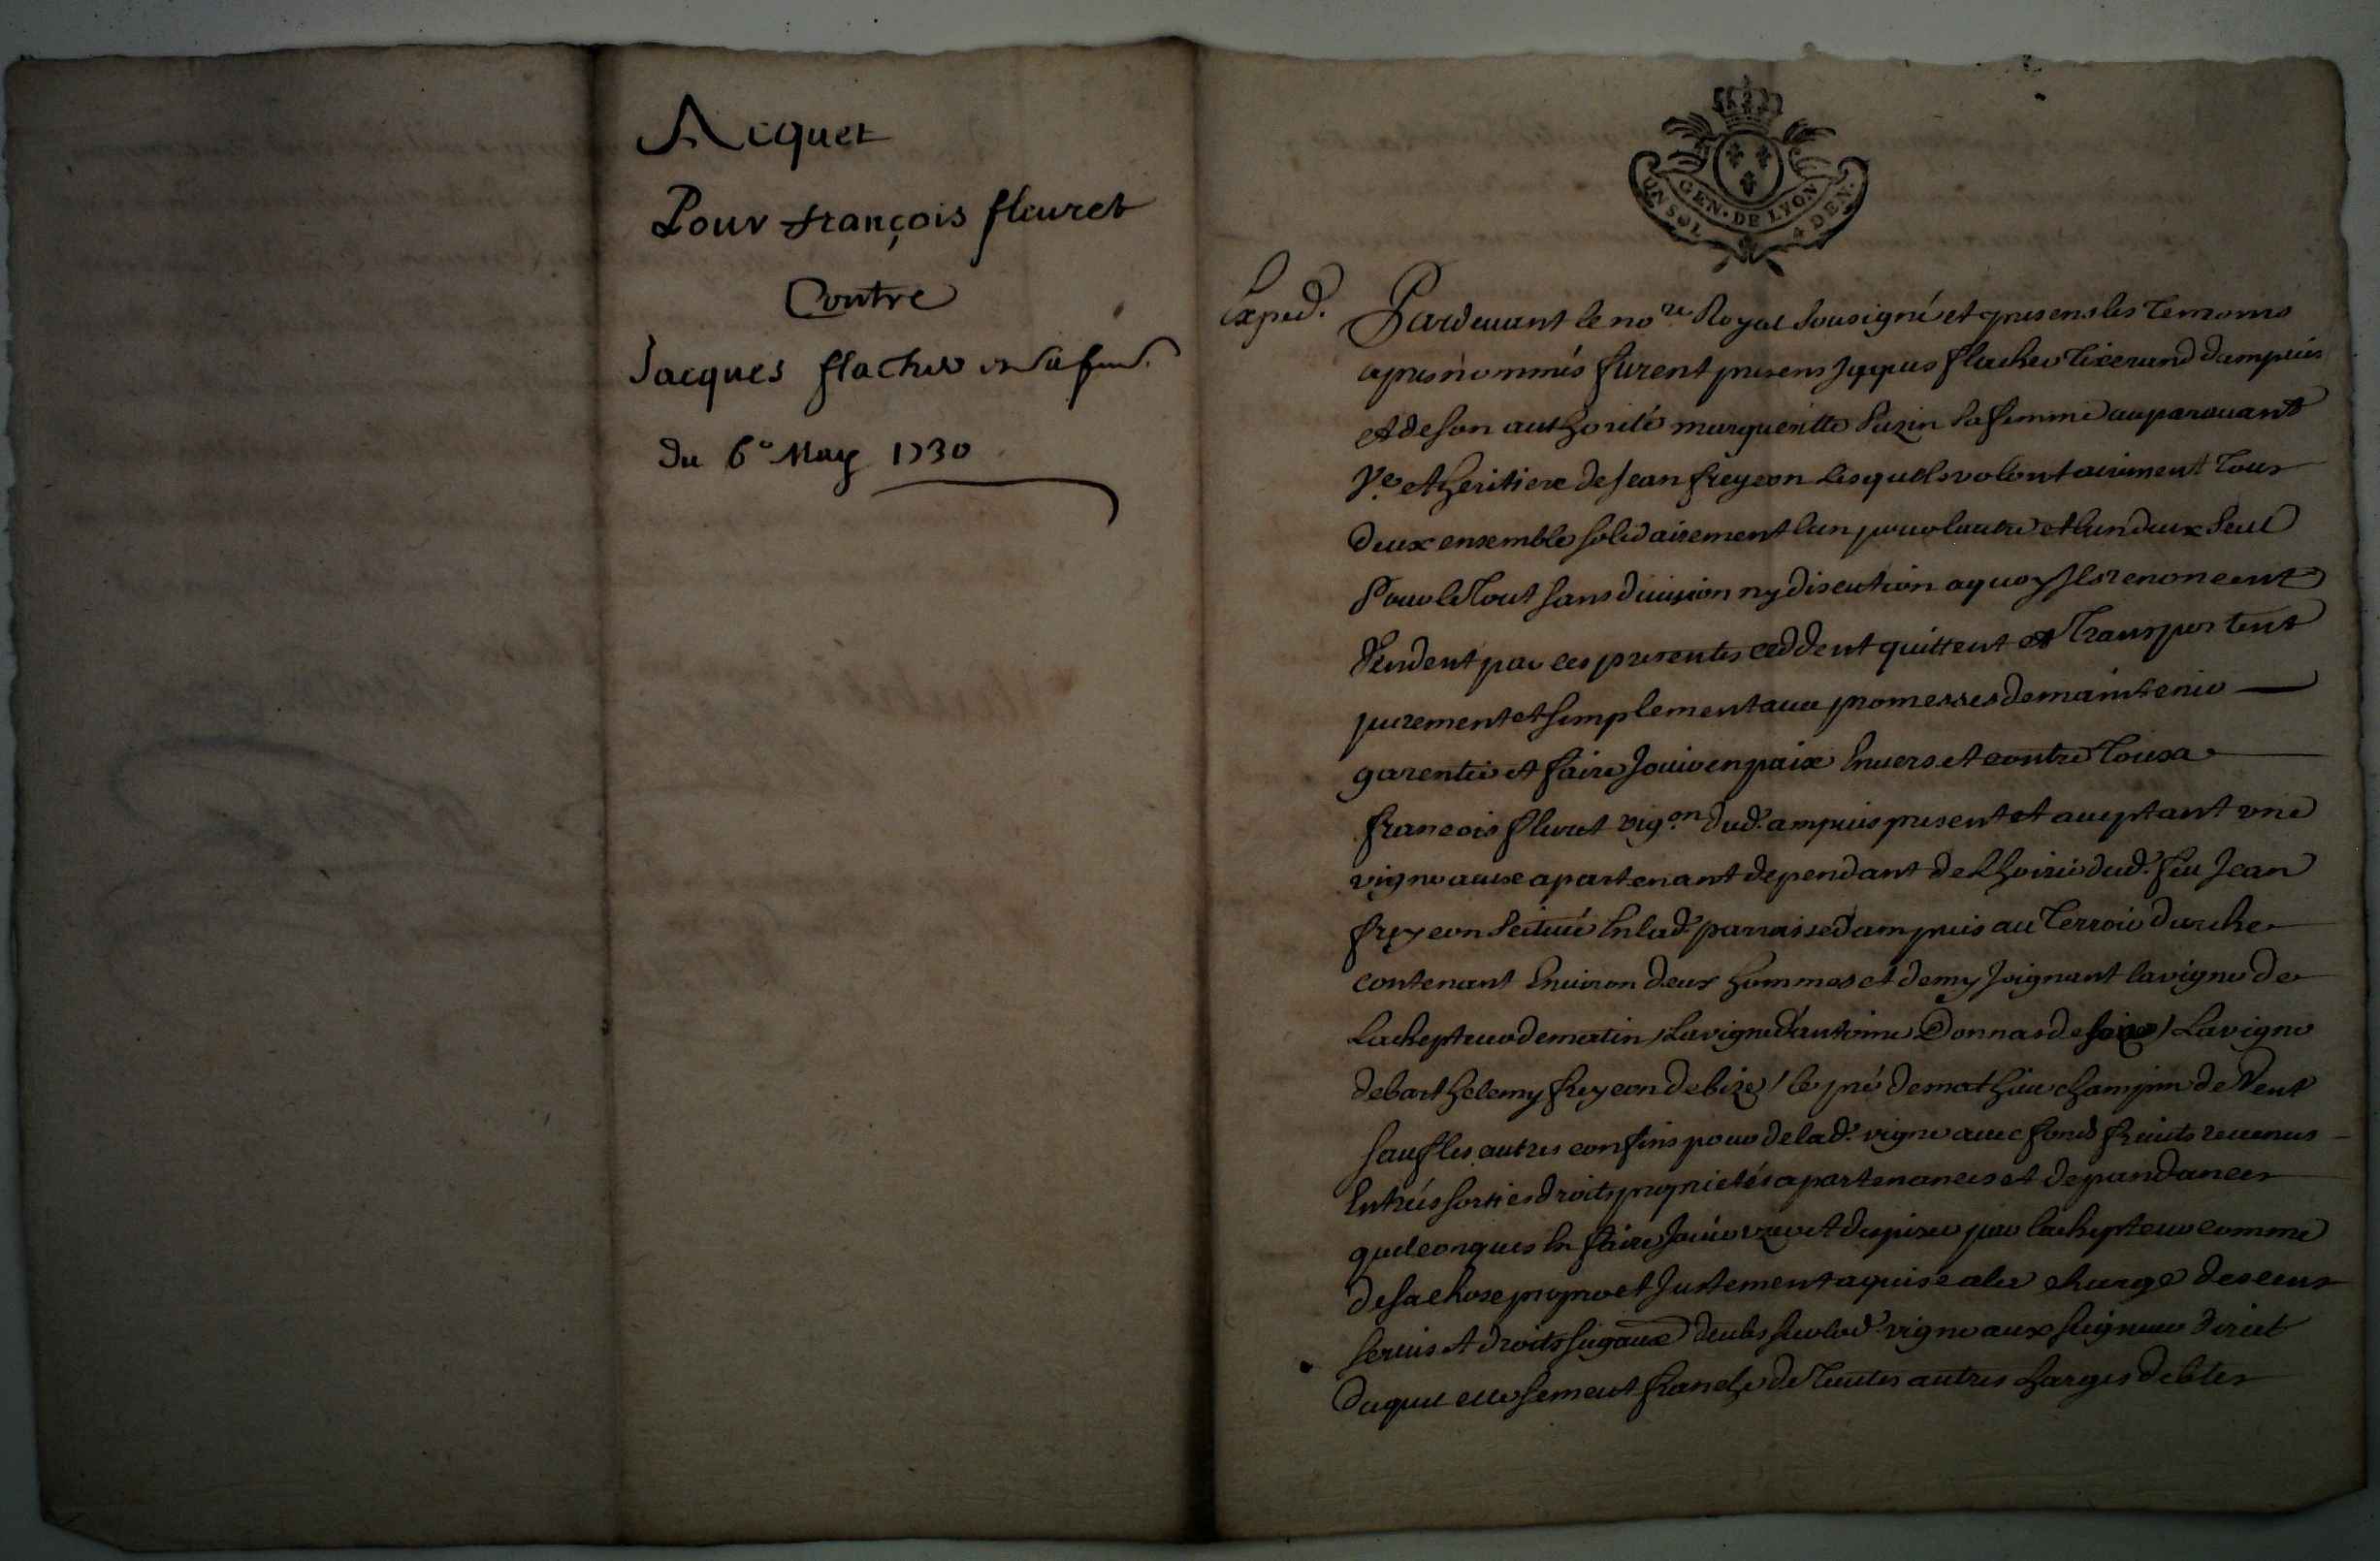 Acquet
Pour françois fleuret
Contre
Jacques flacher et sa fem.
du 6e May 1730
GEN. DE LYON
UN SOL 4 DEN.
Exped.
Pardeuant le nore Royal sousigné et presens les temoins
apres nommés furent presens Jacques flacher tixerand dampuis
et de son authorité margueritte Suzin sa femme auparauant
Ve et heritiere de Jean freycon lesquels volontairement tous
deux ensemble solidairement lun pour lautre et lun deux seul
Pour le tout sans diuision ny discution a quoy Ils renoncent
Vendent par ces presentes ceddent quittent et transportent
purement et simplement auec promesses de maintenir
garentir et faire Jouir en paix Enuers et contre tous a
francois fleuret vigon dud. ampuis present et acceptant une
vigne a eux apartenant dependant de Lhoirie dud. feu Jean
freycon scituée En lad. parroisse dampuis au terroir darche
contenant Enuiron deux hommes et demy Joignant la vigne de
Lachepteur de matin, La vigne dantoine Donnas de soir, La vigne
de barthelemy freycon de bize, le pré de mathieu champin de Vent
sauf les autres confins pour de lad. vigne auec fond fruits reuenus
Entrées sorties droits proprietés apartenances et dependances
quelconques En faire Jouir user et disposer par lachepteur comme
de sa chose propre et Justement aquise a la charge des cens
seruis et droits seigaux deubs sur lad. vigne aux seigneur direct
du quel elle se meut franche de toutes autres charges debtes